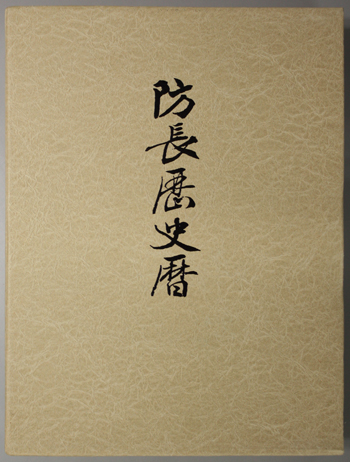 防長歴史暦